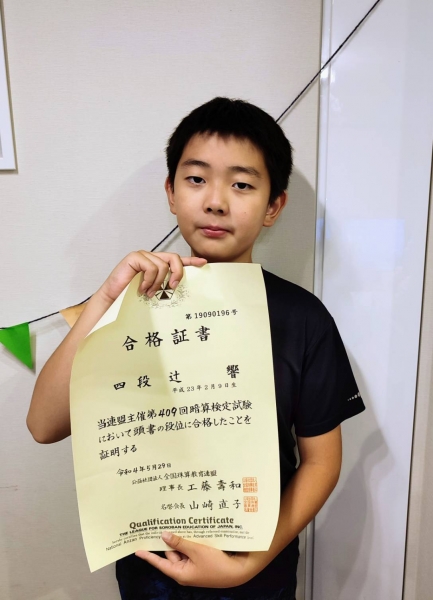 第 19090196 号
合格証書
四段 辻 響
平成23年2月9日生
当連盟主催第409回暗算検定試験
において頭書の段位に合格したことを
証明する
令和4年5月29日
公益社団法人 全国珠算教育連盟
理事長 工藤壽和
名誉会長 山崎直子
Qualification Certificate
THE LEAGUE FOR SOROBAN EDUCATION OF JAPAN, INC.